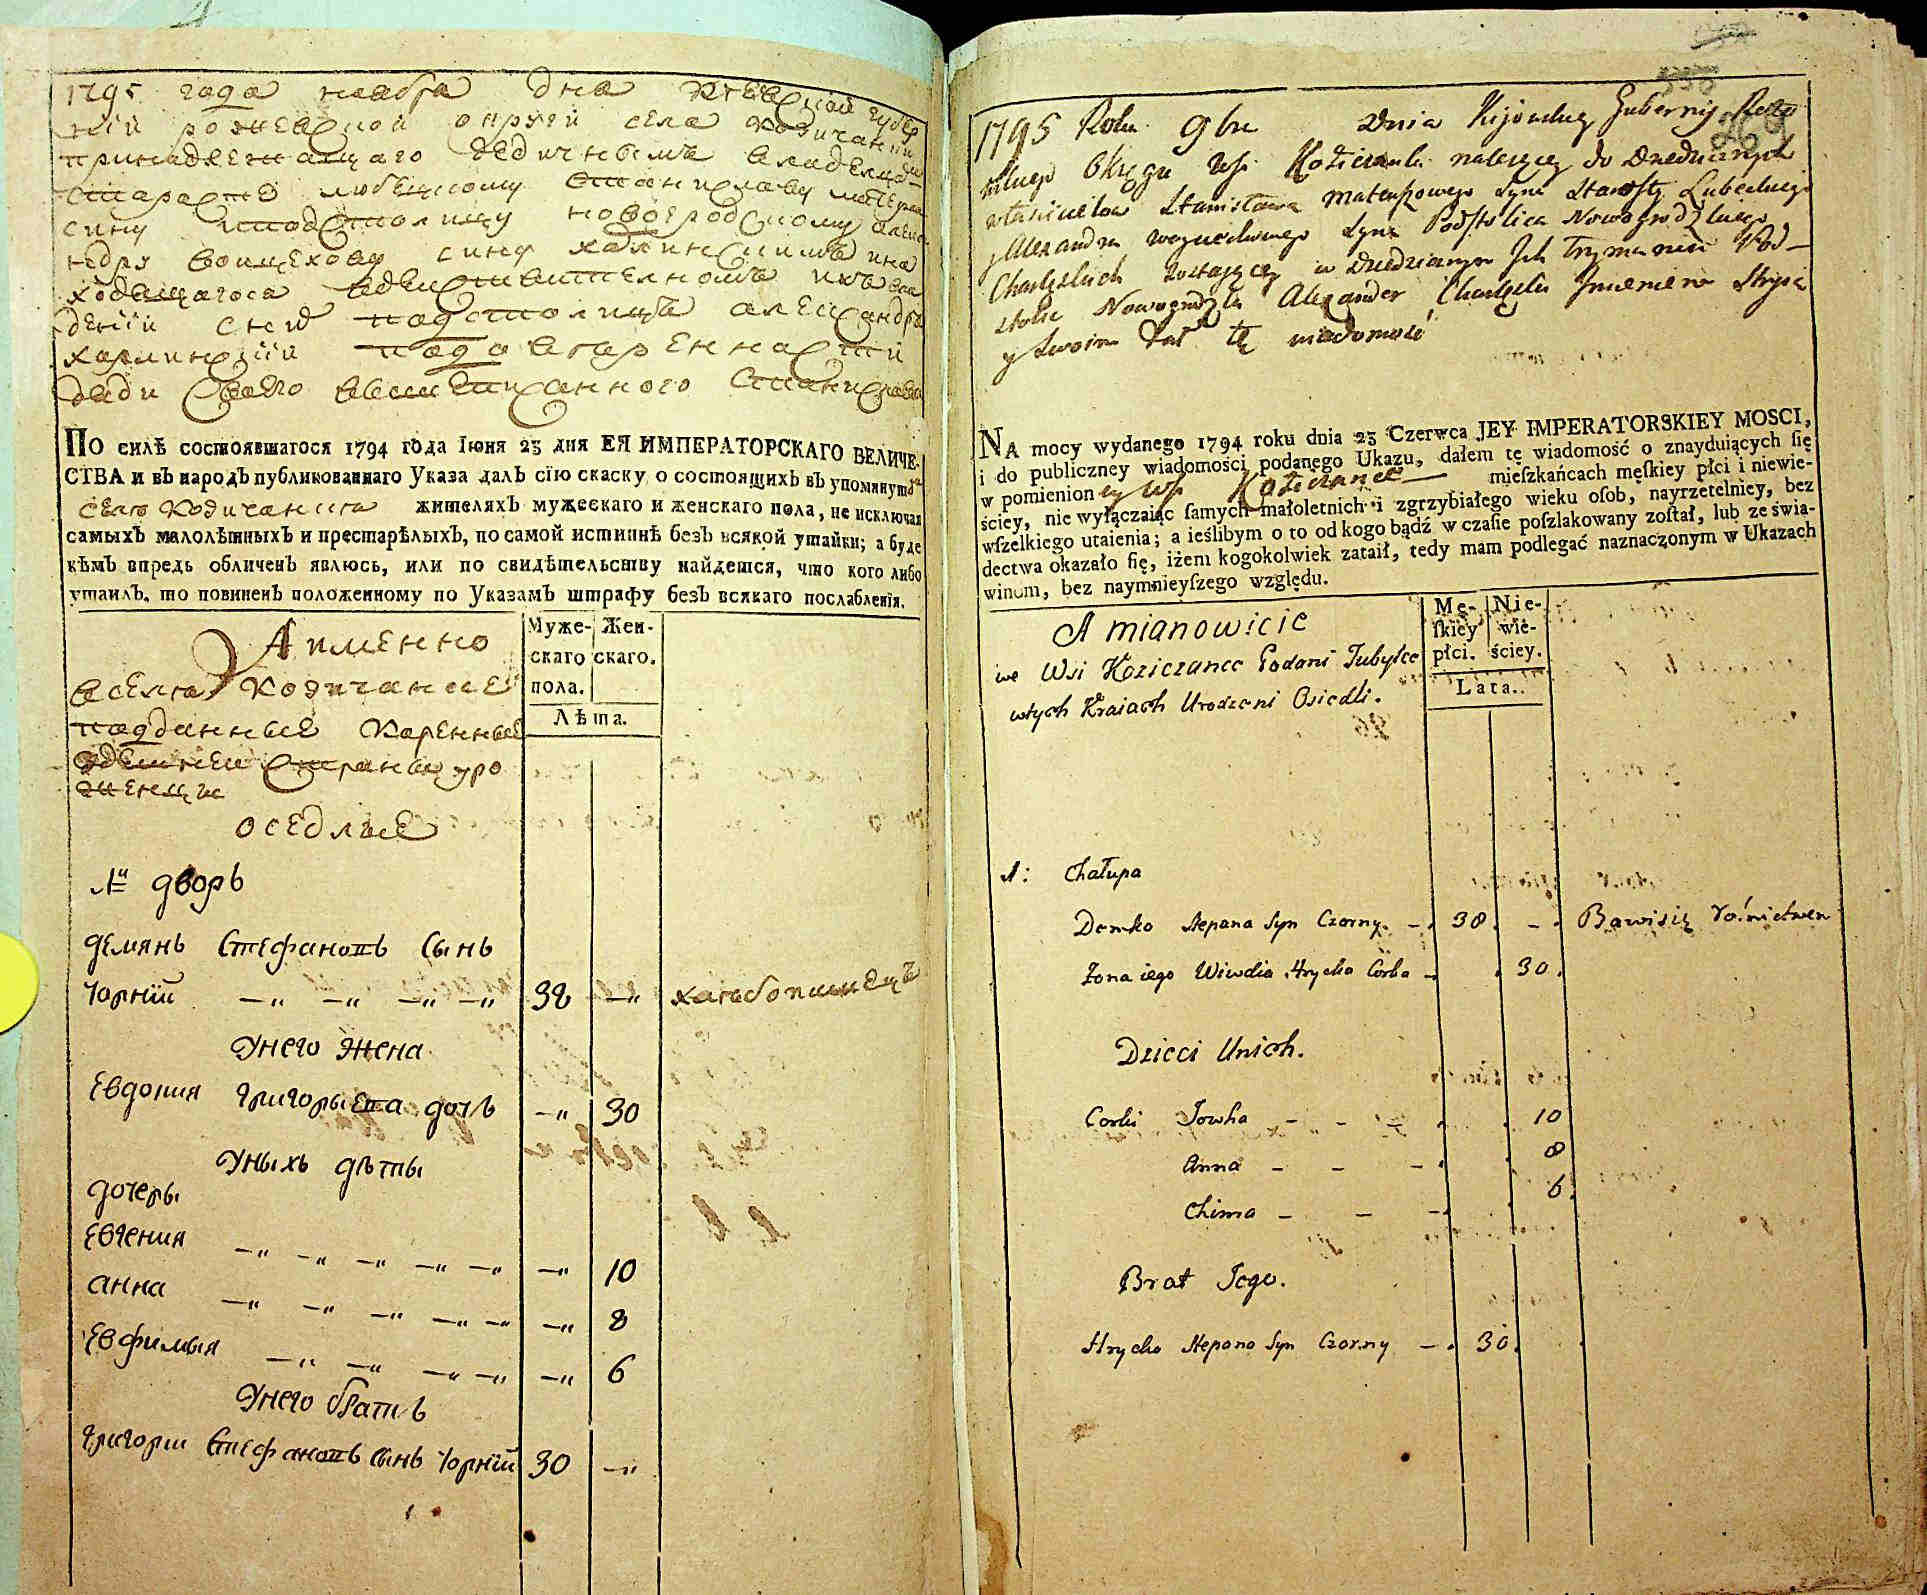 1795 года ноября дня Киевской губер
нии рожевской округи села Козичанки
принадлежащаго дедичнымъ владельцамъ
старосте любецкому Станиславу
сину подстолицу новогродскому
ндру войцехову сину харлинскимъ и на
ходящагося в действительномъ ихъ вла
дении сней подстолицъ александръ
харлинский по доверенности
дяди своего вышеписанного Станислава
По силѣ состоявшагося 1794 года Іюня 23 дня ЕЯ ИМПЕРАТОРСКАГО ВЕЛИЧЕ-
СТВА и въ народъ публикованнаго Указа далъ сїю скаску о состоящихъ въ упомянутомъ
селе Козичанки жителяхъ мужескаго и женскаго пола, не исключая
самыхъ малолѣтныхъ и престарѣлыхъ, по самой истиннѣ безъ всякой утайки; а буде
кѣмъ впредь обличенъ явлюсь, или по свидѣтельству найдется, что кого либо
утаилъ, то повиненъ положенному по Указамъ штрафу безъ всякаго послабленїя.
А именно
Муже- Жен-
скаго скаго.
пола.
Лѣта.
в селе Козичанке
подданные коренные
здешней страны уро
женцы
оседлые
№ 1 дворъ
демянъ Стефановъ Сынъ
Чорнїй —„ —„ —„ —„ 38 —„ хлебопашецъ
Унего жена
Евдокия григорьева дочь —„ 30
Уныхъ дѣты
дочеры
Евгения —„ —„ —„ —„ —„ —„ 10
анна —„ —„ —„ —„ —„ —„ 8
Евфимыя —„ —„ —„ —„ —„ 6
Унего братъ
григорий Стефановъ сынъ Чорнїй 30 —„
1795 Roku 9bra Dnia Kijowskiey Gubernij
Okręgu Wsi Koziczanki należącey do Dziedzicznych
właścicielow Stanisława Mateuszowego Syna Starosty Lubeckiego
y Alexandra woyciechowego Syna Podstolica Nowogrodzkiego
Charlęzkich zostaiącey w Dziedzicznym Ich Trzymaniu Pod-
stolic Nowogrodzki Alexander Charlęski Imieniem Stryia
y Swoim Dał tę wiadomość
NA mocy wydanego 1794 roku dnia 23 Czerwca JEY IMPERATORSKIEY MOSCI,
i do publiczney wiadomości podanego Ukazu, dałem tę wiadomość o znayduiących ſię
w pomienioney Wsi Koziczance mieſzkańcach męſkiey płci i niewie-
ściey, nie wyłączaiąc ſamych małoletnich i zgrzybiałego wieku oſob, nayrzetelniey, bez
wſzelkiego utaienia; a ieślibym o to od kogo bądź w czaſie poſzlakowany zoſtał, lub ze świa-
dectwa okazało ſię, iżem kogokolwiek zataił, tedy mam podlegać naznaczonym w Ukazach
winom, bez naymnieyſzego względu.
A mianowicie
Mę- Nie-
ſkiey wie-
płci. ściey.
Lata.
we Wsi Koziczance Podani Tubylce
wtych Kraiach Urodzeni Osiedli.
1: Chałupa
Demko Stepana Syn Czorny — 38. — Bawisię rolnictwem
Żona iego Wiwdia Hrycka Corka — . 30.
Dzieci Unich.
Corki Jowha — — — . . 10
Anna — — — . . 8
Chima — — — . . 6.
Brat Jego.
Hrycko Stepana Syn Czorny — . 30.